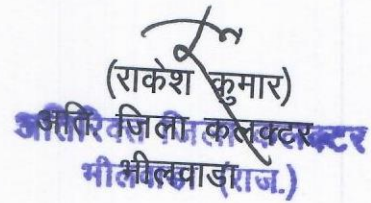 (राकेश कुमार)
अति. जिला कलक्टर
भीलवाडा
अतिरिक्त जिला कलक्टर
भीलवाडा (राज.)